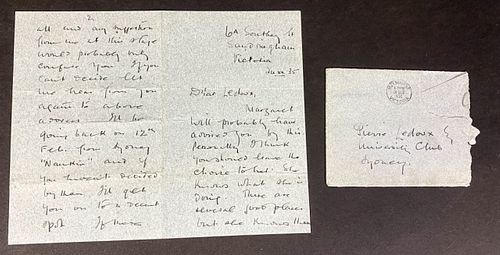 6A Southey St
Sandringham
Victoria
Dear Ledoux,
Margaret
will probably have
advised you by this
personally. I think
you should leave the
choice to her. She
knows what she is
doing. There are
several good places
but she knows them
2.
all and any suggestion
from me at this stage
would probably only
confuse you. If you
can't decide let
me hear from you
again to above
address. I'll be
going back on 12th
Feb. from Sydney
and if
you haven't decided
by then I'll get
you on to a decent
spot. If there
Pierre Ledoux Esq
University Club
Sydney.